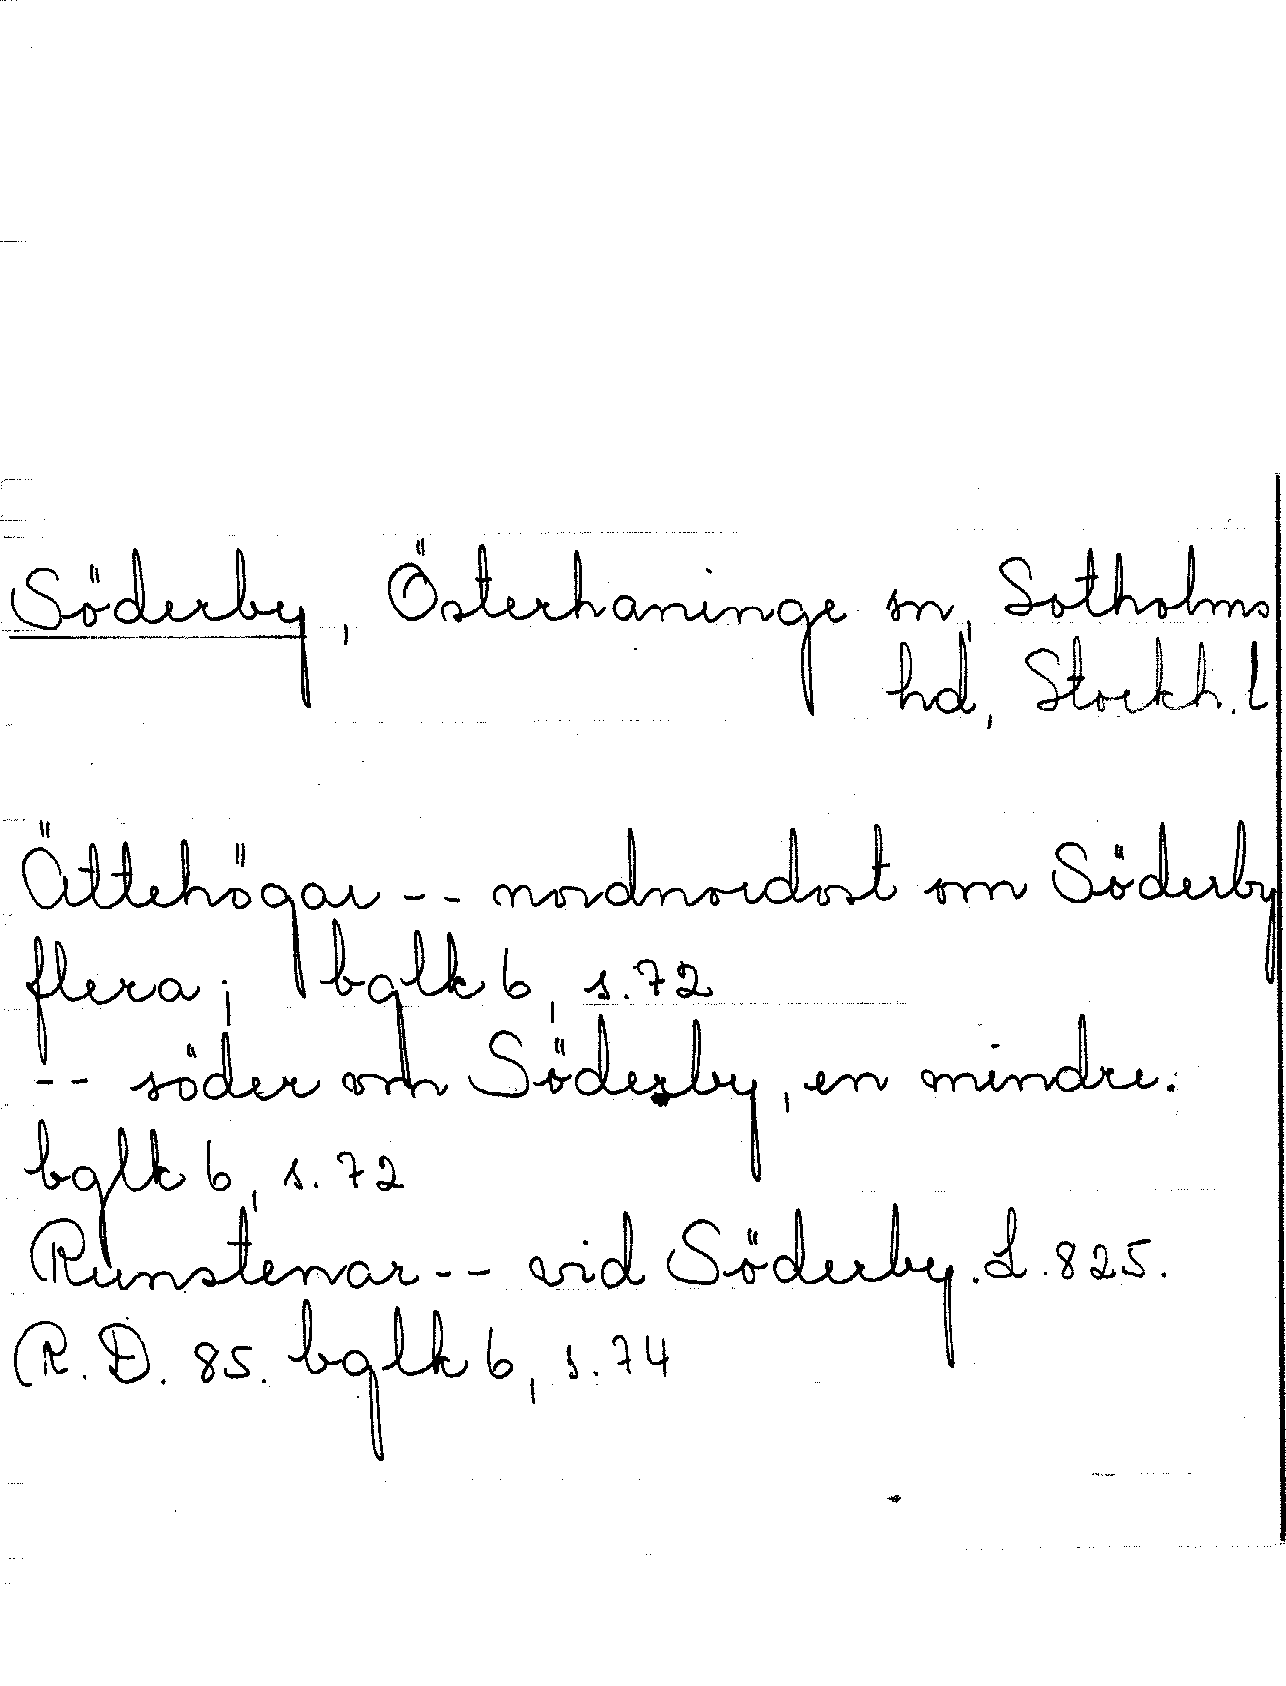 Söderby, Österhaninge sn, Sotholms
hd, Stockh. l
Ättehögar -- nordnordost om Söderby
flera; bglk 6, s. 72
-- söder om Söderby, en mindre.
bglk 6, s. 72
Runstenar -- vid Söderby. L. 825.
R. D. 85. bglk 6, s. 74